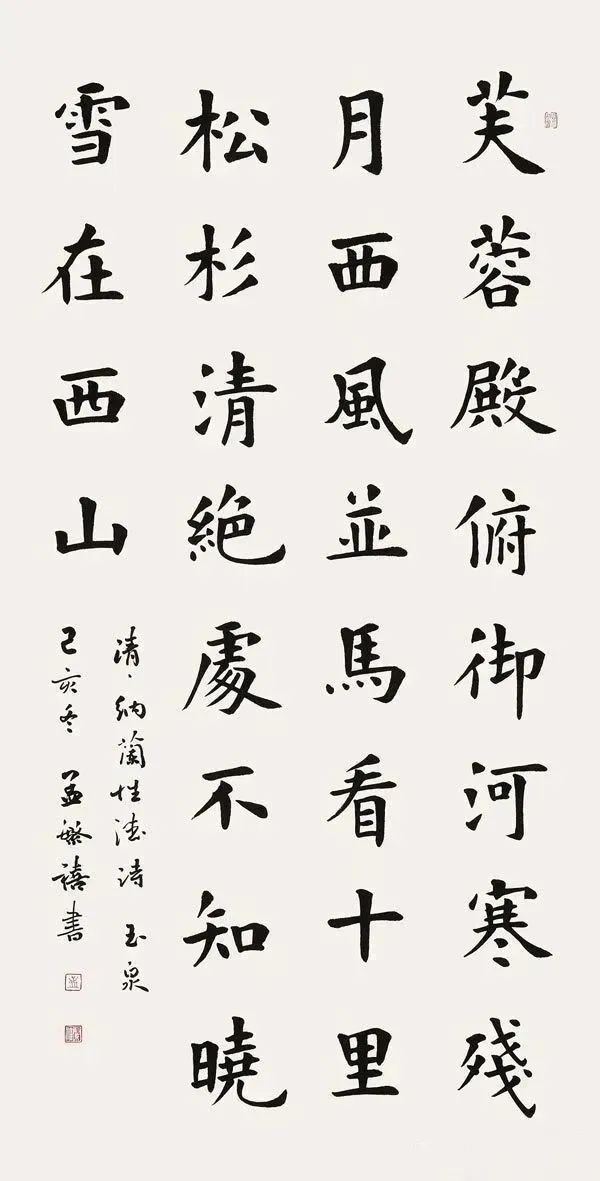 芙蓉殿俯御河寒殘
月西風並馬看十里
松杉清絕處不知曉
雪在西山
清、納蘭性德詩 玉泉
己亥冬 孟繁禧書